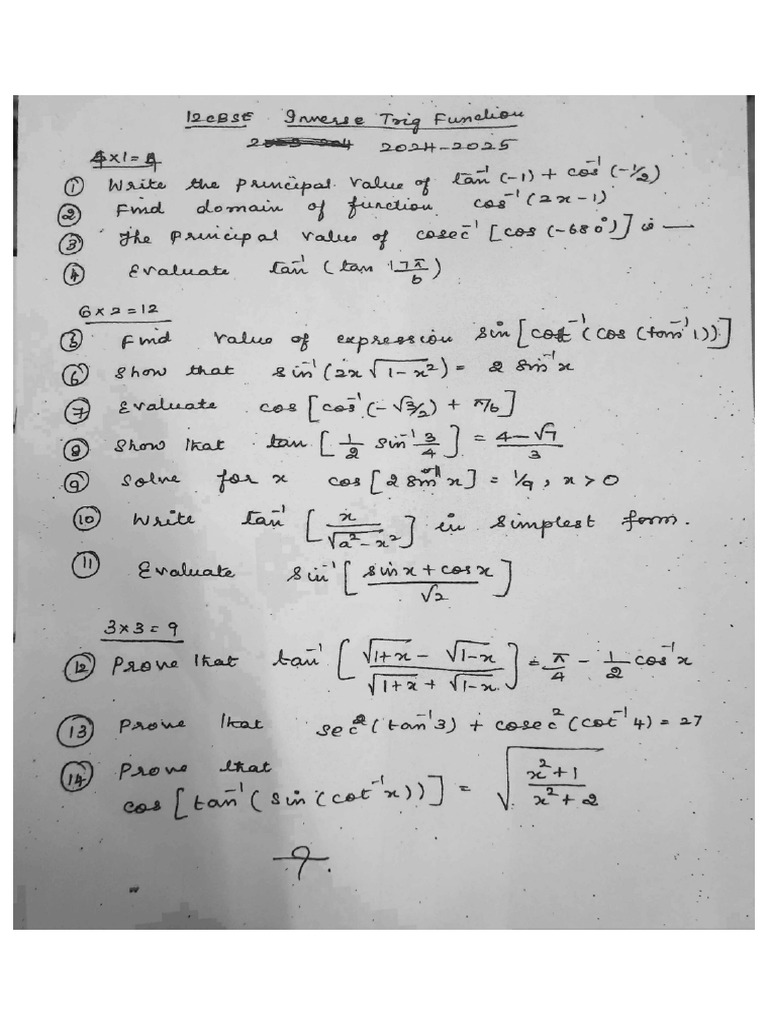 12 CBSE Inverse Trig Function
2024-2025
4×1=4
① Write the principal value of tan⁻¹(-1) + cos⁻¹(-1/2)
② Find domain of function cos⁻¹(2x-1)
③ The principal value of cosec⁻¹[cos(-680°)] is —
④ Evaluate tan⁻¹(tan 17π/6)
6×2=12
⑤ Find value of expression sin[cot⁻¹(cos(tan⁻¹1))]
⑥ Show that sin⁻¹(2x√(1-x²)) = 2 sin⁻¹x
⑦ Evaluate cos[cos⁻¹(-√3/2) + π/6]
⑧ Show that tan[1/2 sin⁻¹ 3/4] = (4-√7)/3
⑨ Solve for x cos[2 sin⁻¹x] = 1/9, x>0
⑩ Write tan⁻¹[x/√(a²-x²)] in simplest form.
⑪ Evaluate sin⁻¹[(sinx+cosx)/√2]
3×3=9
⑫ Prove that tan⁻¹[(√(1+x) - √(1-x))/(√(1+x) + √(1-x))] = π/4 - 1/2 cos⁻¹x
⑬ Prove that sec²(tan⁻¹3) + cosec²(cot⁻¹4) = 27
⑭ Prove that
cos[tan⁻¹(sin(cot⁻¹x))] = √((x²+1)/(x²+2))